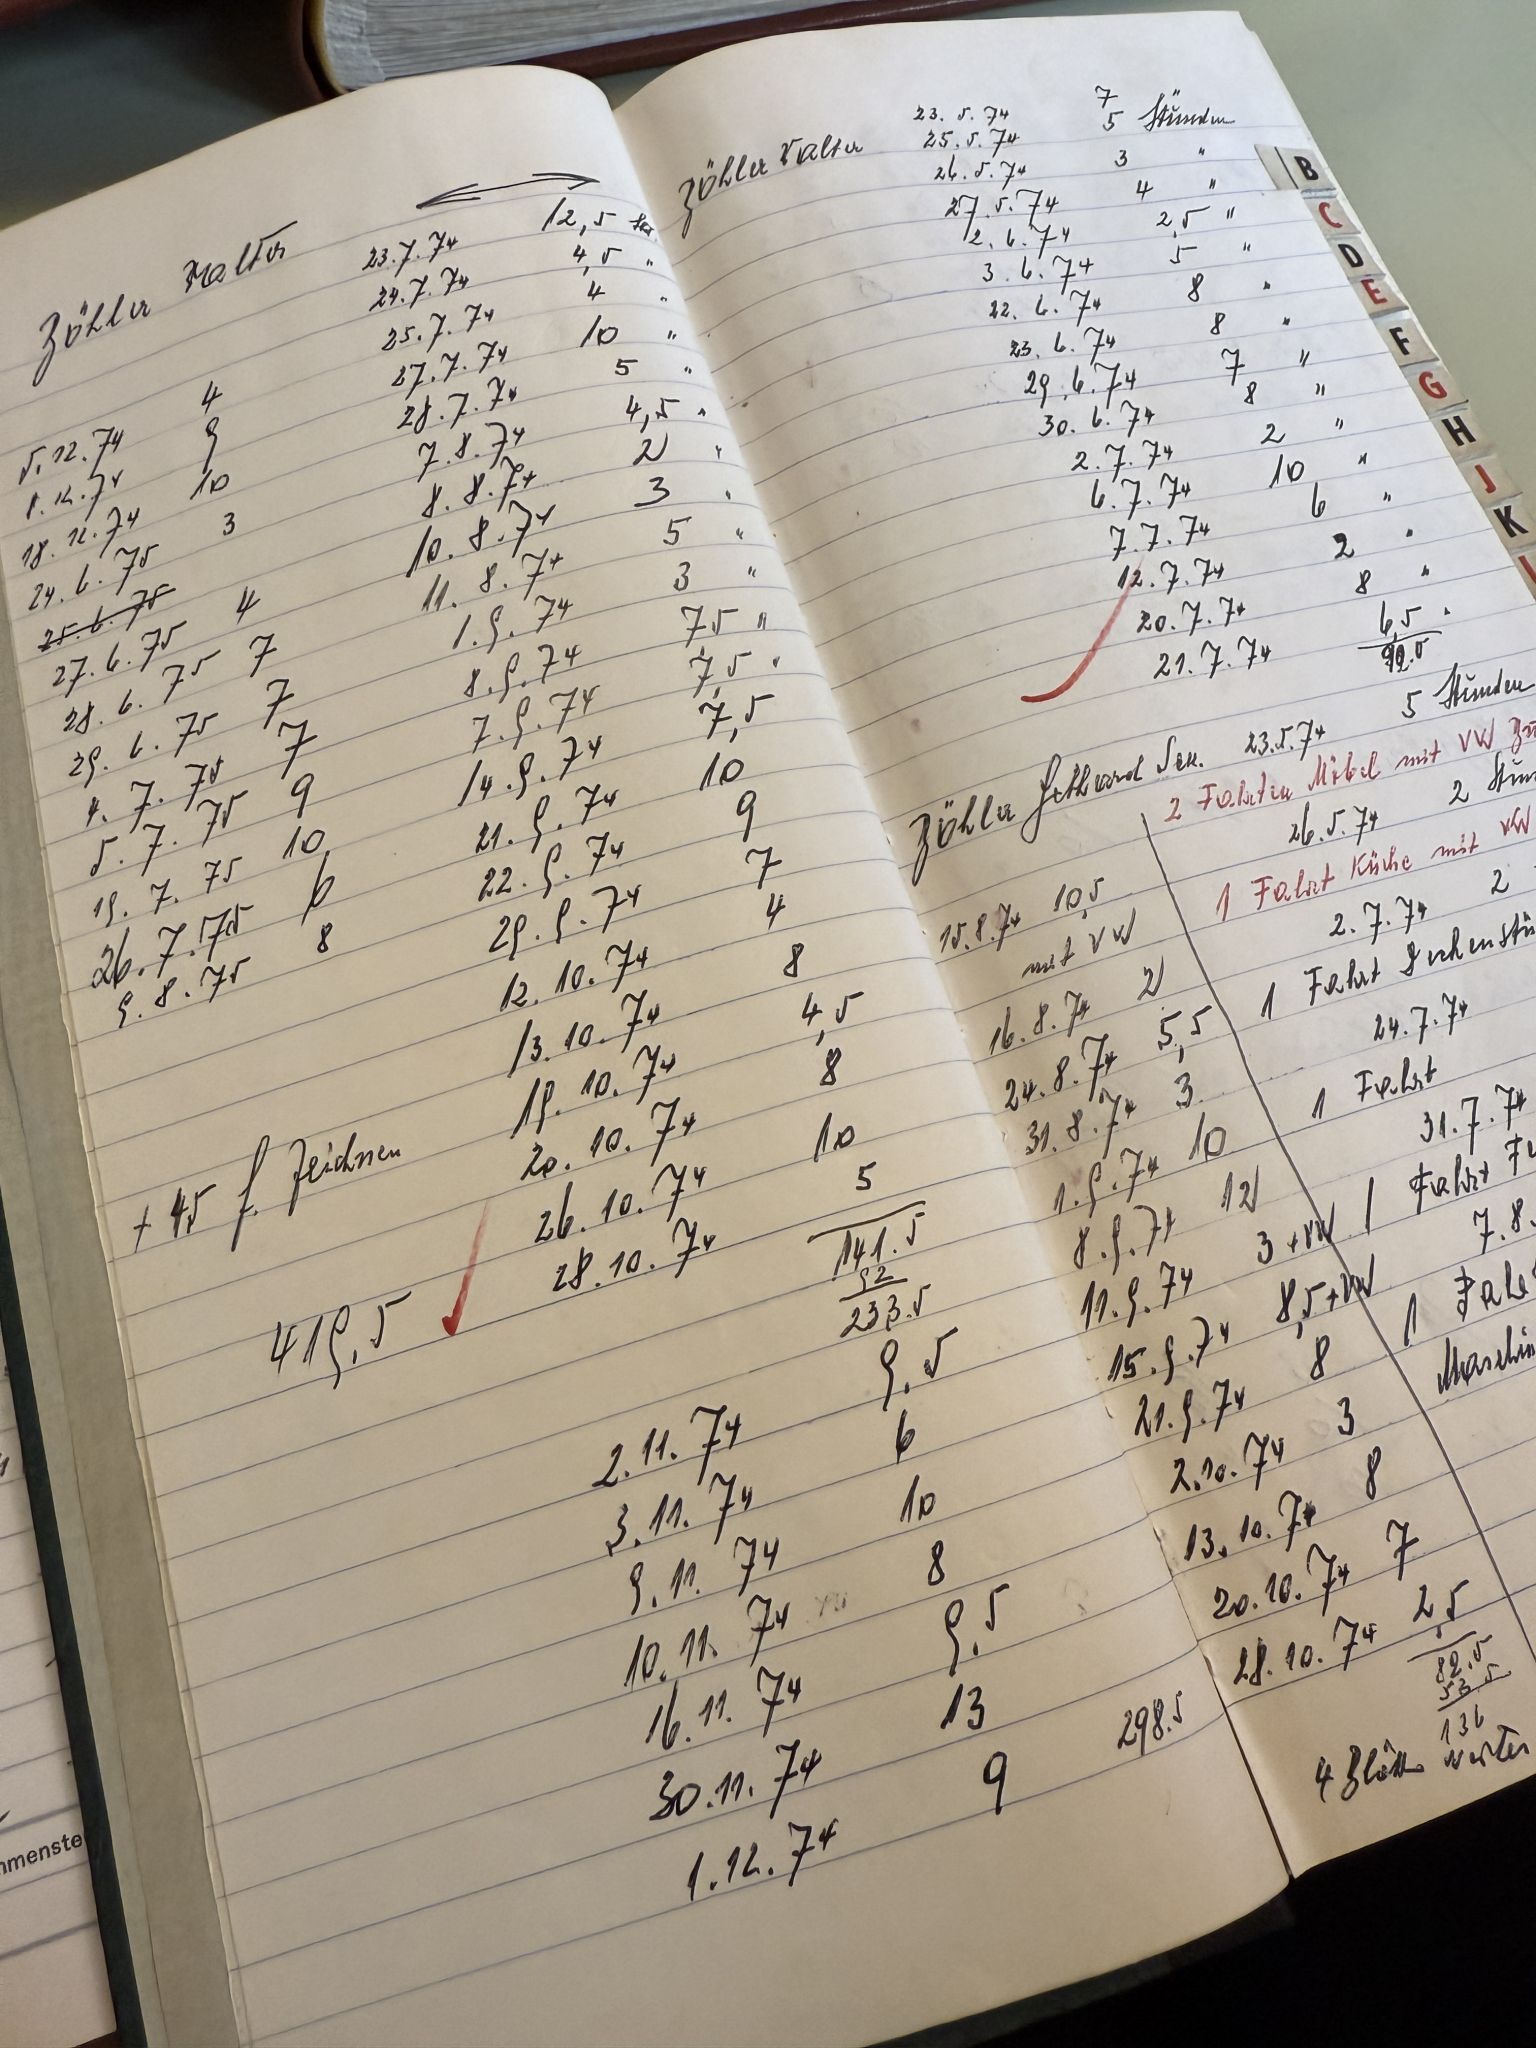 Zöhler Walter
23.7.74 12,5 Std.
24.7.74 4,5 "
25.7.74 4 "
27.7.74 10 "
28.7.74 5 "
7.8.74 4,5 "
8.8.74 2 "
10.8.74 3 "
11.8.74 5 "
1.9.74 3 "
8.9.74 7,5 "
7.9.74 7,5 "
14.9.74 7,5
21.9.74 10
22.9.74 9
29.9.74 7
12.10.74 4
13.10.74 8
19.10.74 4,5
20.10.74 8
26.10.74 10
28.10.74 5
141.5
92
233.5
2.11.74 9.5
3.11.74 6
9.11.74 10
10.11.74 8
16.11.74 9.5
30.11.74 13
1.12.74 9
298.5
5.12.74 4
8.12.74 9
18.12.74 10
24.6.75 3
25.6.75
27.6.75 4
28.6.75 7
29.6.75 7
4.7.75 7
5.7.75 9
19.7.75 10
26.7.75 6
9.8.75 8
+ 45 f. Zeichnen
419.5
Zöhler Walter
23.5.74 7 "
25.5.74 5 Stunden
26.5.74 3 "
27.5.74 4 "
2.6.74 2,5 "
3.6.74 5 "
22.6.74 8 "
23.6.74 8 "
29.6.74 7 "
30.6.74 8 "
2.7.74 2 "
6.7.74 10 "
7.7.74 6 "
12.7.74 2 "
20.7.74 8 "
21.7.74 6,5 "
92.0
Zöhler Gethard Sen. 23.5.74 5 Stunden
2 Fahrten Möbel mit VW
26.5.74 2
1 Fahrt Küche mit VW
2.7.74 2
1 Fahrt
24.7.74
1 Fahrt
31.7.74
1 Fahrt
7.8.
1
15.8.74 10,5
mit VW
16.8.74 2
24.8.74 5,5
31.8.74 3
1.9.74 10
8.9.74 12
11.9.74 3 + VW
15.9.74 8,5 + VW
21.9.74 8
2.10.74 3
13.10.74 8
20.10.74 7
28.10.74 2,5
82.5
53.5
136
4 Blätter weiter
B
C
D
E
F
G
H
J
K